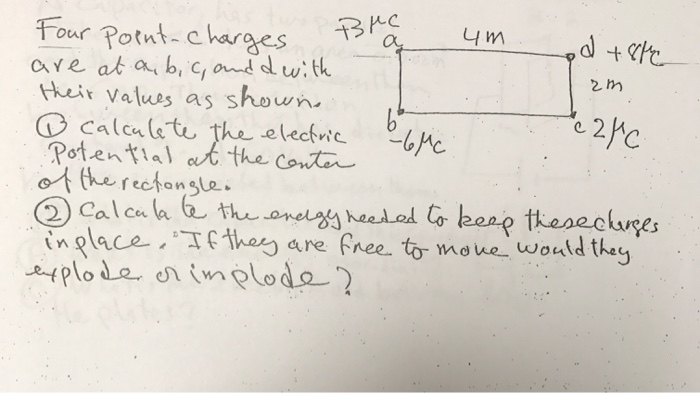 Four Point-charges
are at a, b, c, and d with
their values as shown.
① Calculate the electric
Potential at the center
of the rectangle.
② Calculate the energy needed to keep these charges
in place. If they are free to move would they
explode or implode?
+3 μC
a
4m
d +8μC
2m
b
-6μC
c 2μC